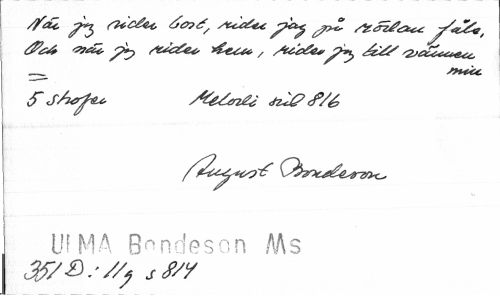 När jag rider bort, rider jag på rödan fåle,
Och när jag rider hem, rider jag till vännen
min
=
5 strofer Melodi sid 816
August Bondeson
ULMA Bondeson Ms
351 D: 11g s 814